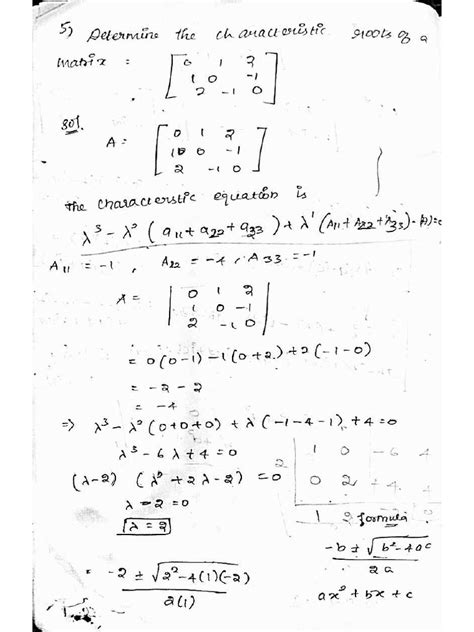 5) Determine the characteristic roots of a
matrix : [ 0 1 2
1 0 -1
2 -1 0 ]
Sol.
A = [ 0 1 2
1 0 -1
2 -1 0 ]
the characterstic equation is
λ³ - λ² (a11 + a22 + a33) + λ¹ (A11 + A22 + A33) -
A11 = -1 , A22 = -4 , A33 = -1
A = | 0 1 2
1 0 -1
2 -1 0 |
= 0(0-1) -1(0+2) +2(-1-0)
= -2 - 2
= -4
⇒ λ³ - λ²(0+0+0) + λ(-1-4-1) + 4 = 0
λ³ - 6λ + 4 = 0
(λ-2) (λ² + 2λ - 2) = 0
λ - 2 = 0
λ = 2
2 | 1 0 -6 4
0 2
1 2
formula
-b ± √b² - 4ac
2a
ax² + bx + c
= -2 ± √2² - 4(1)(-2)
2(1)